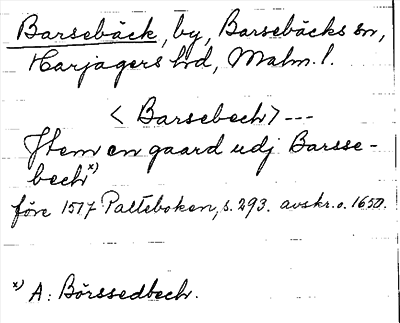 Barsebäck, by, Barsebäcks sn,
Harjagers hd, Malm. l.
< Barsebech> ---
Jtem en gaard udj Barsse-
bech x)
före 1517 Palteboken, s. 293. avskr. o. 1650.
x) A: Börssedbech.